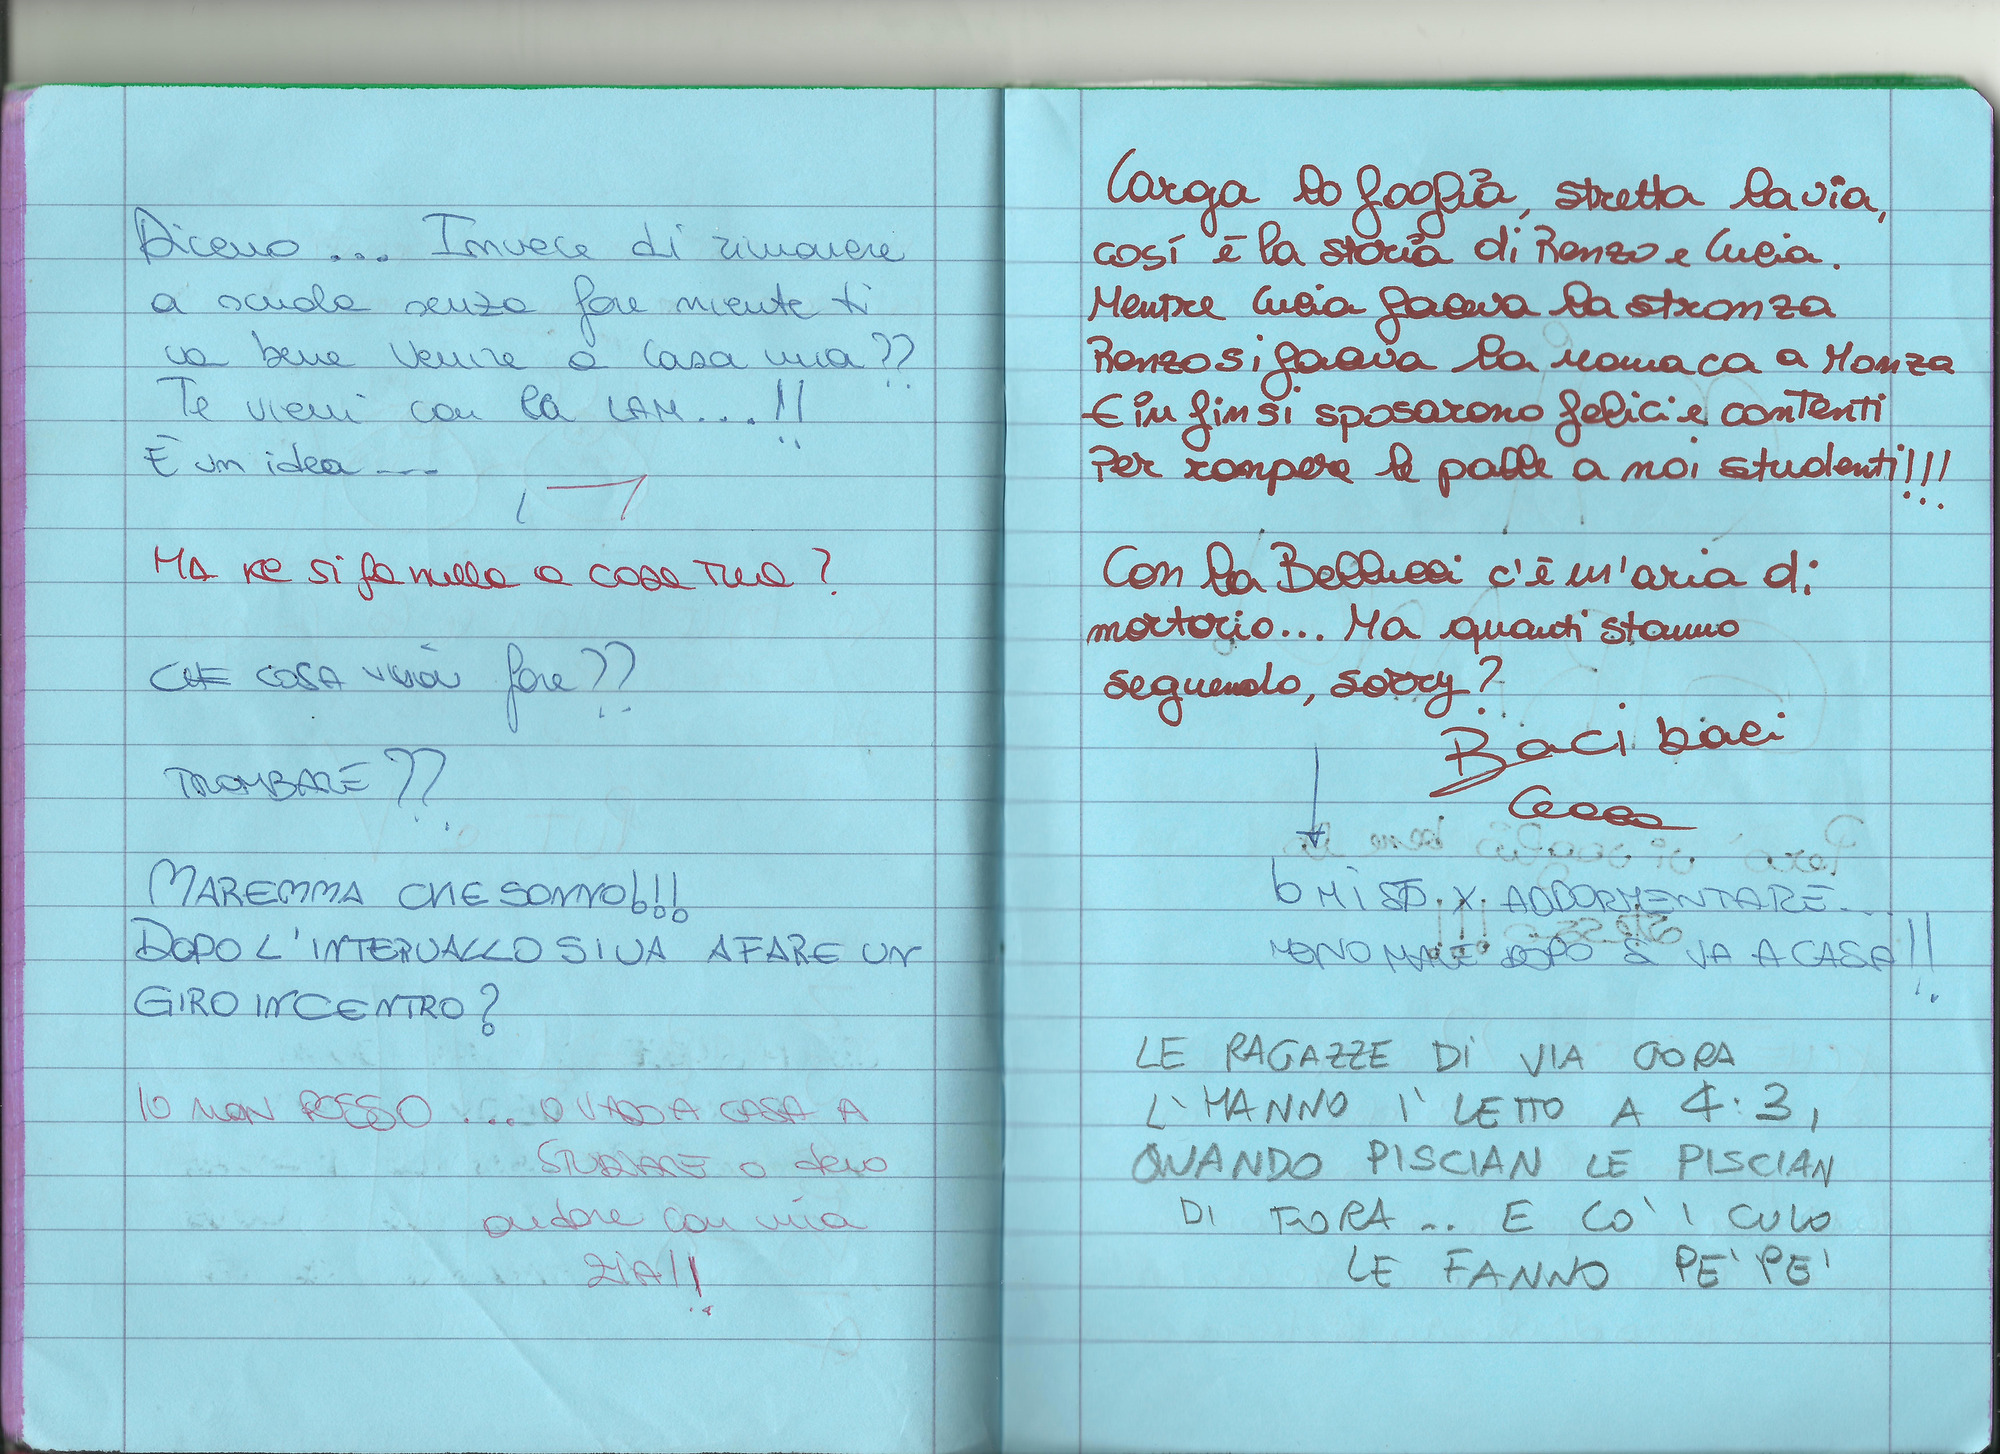 Diceno ... Invece di rimanere
a scuola senza fare niente ti
va bene venire a casa mia??
Te vieni con la LAM....!!
È un idea ----
MA KE si fa nulla a casa TUA?
CHE COSA VUOI fare??
TROMBARE??
MAREMMA CHE SONNO!!!
DOPO L'INTERVALLO SI VA A FARE UN
GIRO IN CENTRO?
IO NON POSSO .... O VADO A CASA A
STUDIARE o devo
andare con mia
ZIA!!
Larga la foglia, stretta la via,
così è la storia di Renzo e Lucia.
Mentre Lucia faceva la stronza
Renzo si faceva la monaca a Monza
E in fin si sposarono felici e contenti
Per rompere le palle a noi studenti!!!
Con la Bellucci c'è un'aria di
mortorio... Ma quanti stanno
seguendo, sorry?
Baci baci
6 MI STO X ADDORMENTARE...
MENO MALE DOPO SI VA A CASA!!
LE RAGAZZE DI VIA GORA
L'HANNO I' LETTO A 4:3,
QUANDO PISCIAN LE PISCIAN
DI FORA... E CO' I CULO
LE FANNO PE' PE'